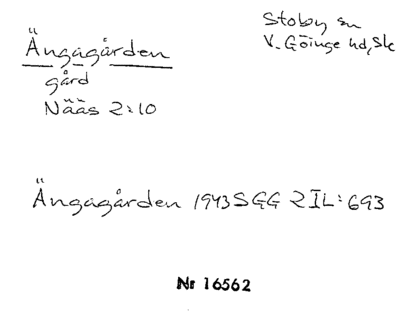 Ängagården
gård
Nääs 2:10
Stoby sn
V. Göinge hd, Sk
Ängagården 1943 SGG 2 IL:693
Nr 16562